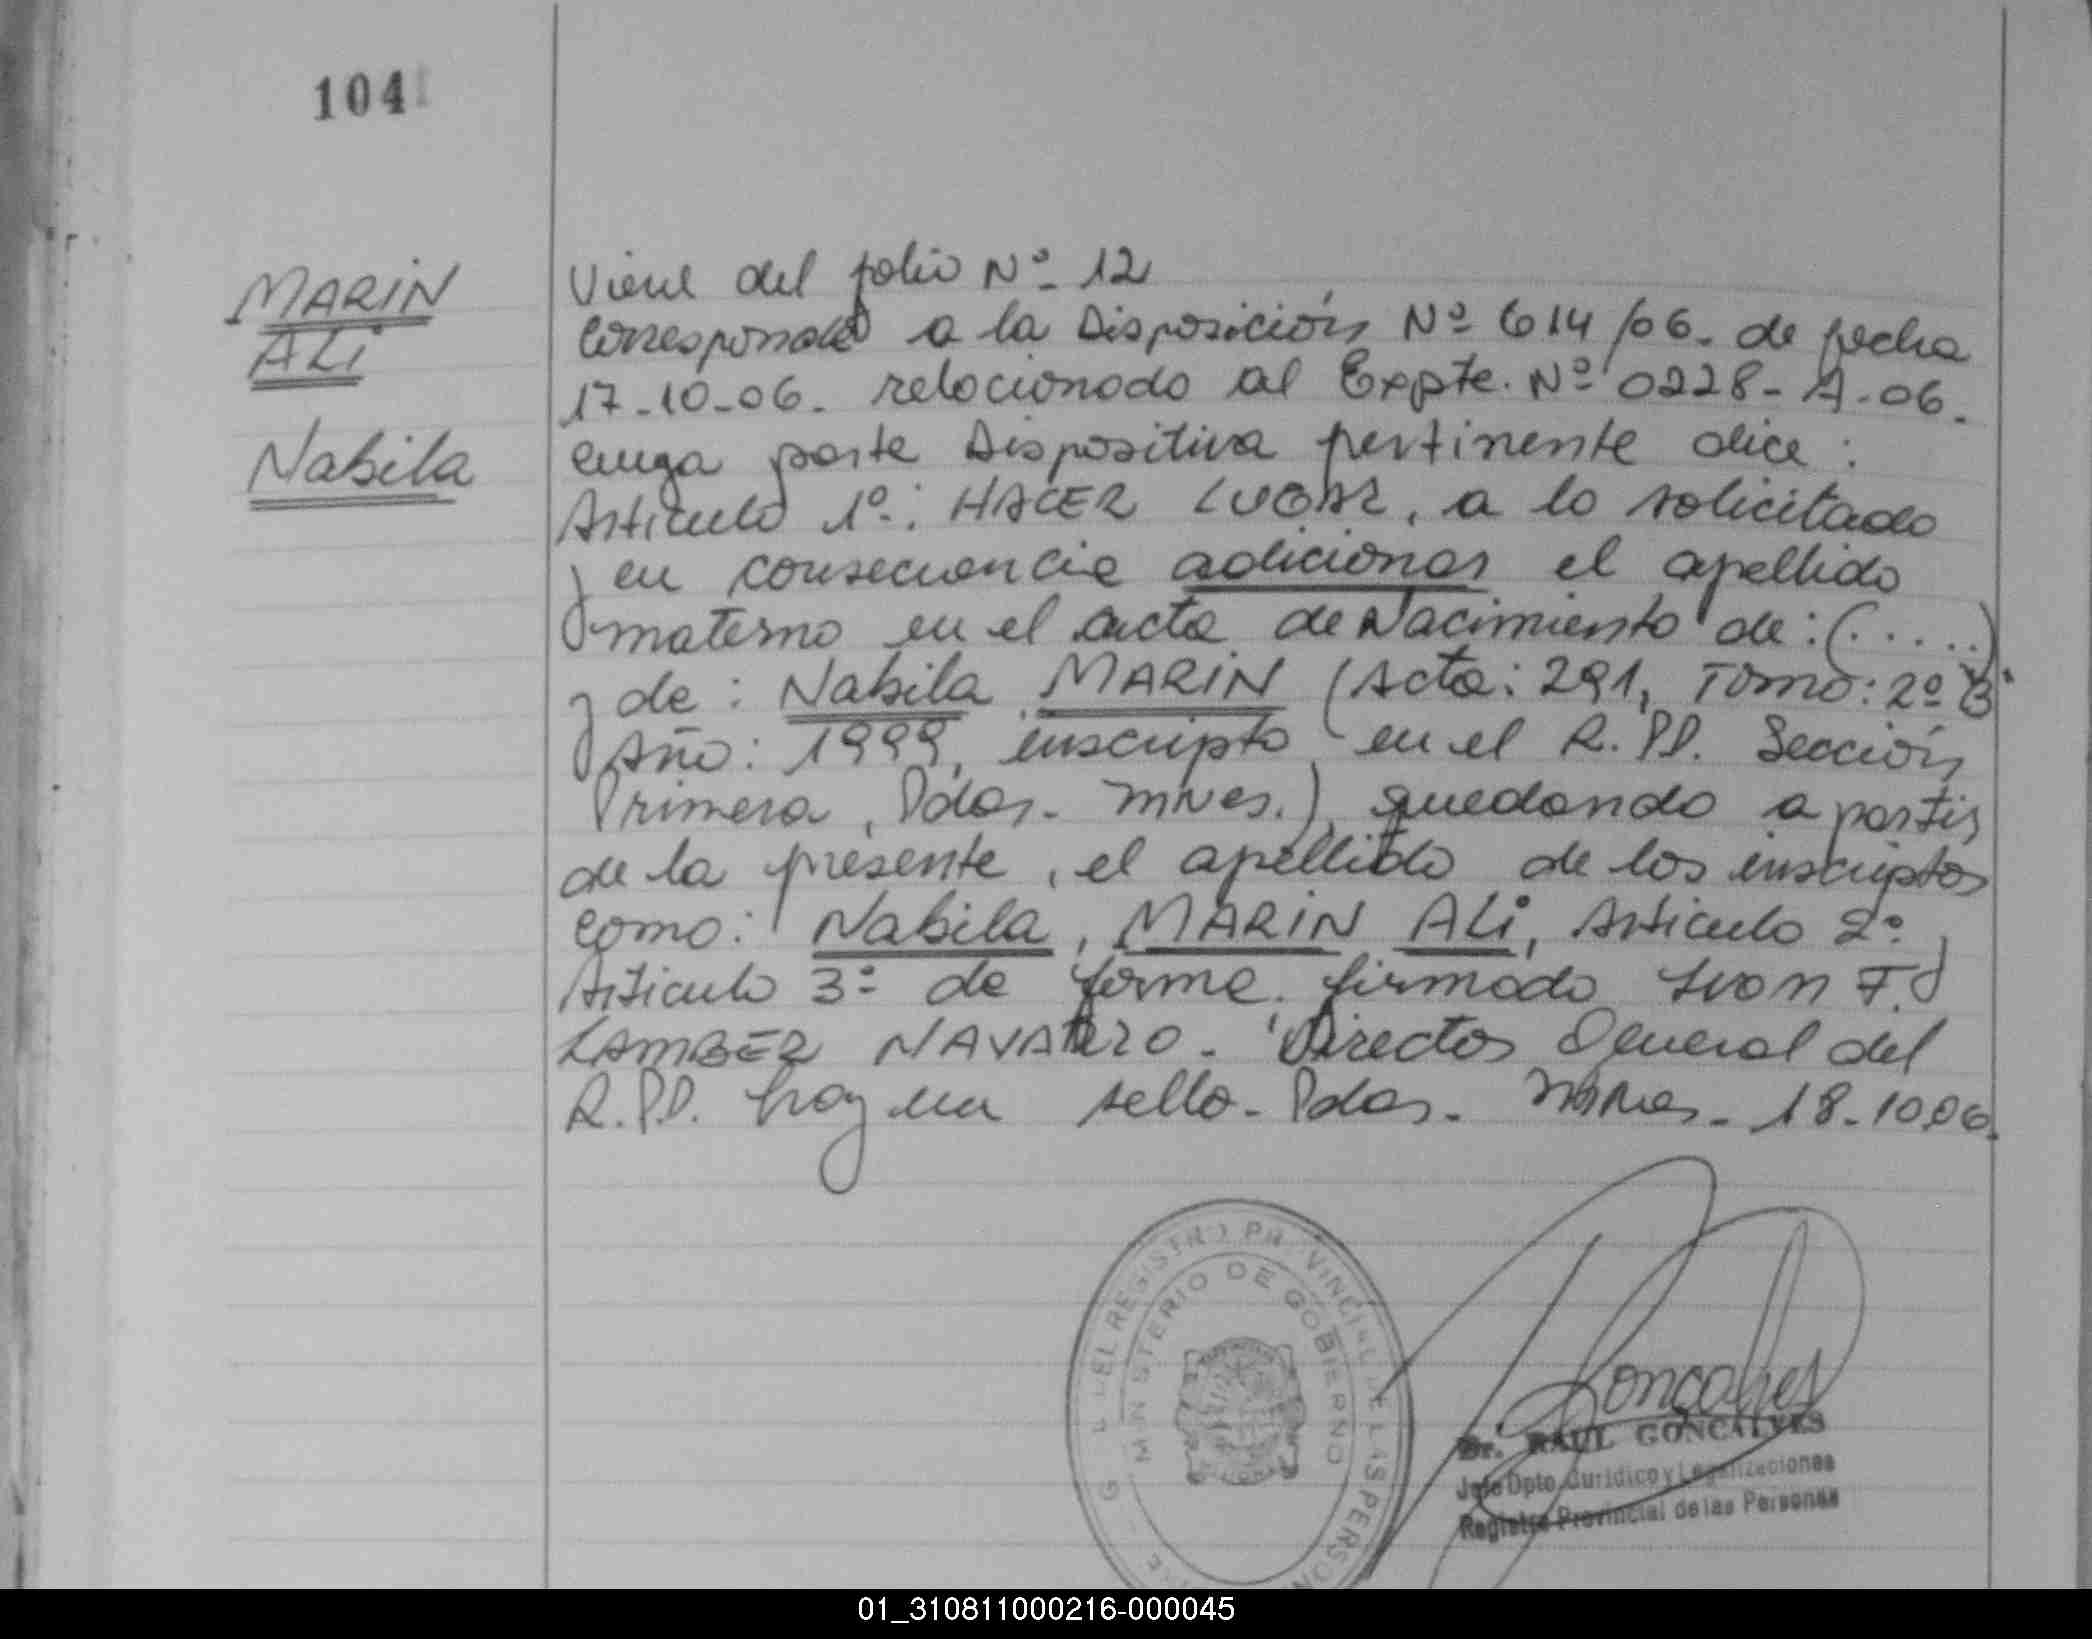 104
MARIN
ALI
Nabila
Viene del folio Nº 12
corresponde a la Disposición Nº 614/06. de fecha
17-10-06. relacionado al Expte. Nº 0228-A-06.
cuya parte Dispositiva pertinente dice:
Articulo 1º: HACER LUGAR, a lo solicitado
y en consecuencia adicionar el apellido
materno en el acta de Nacimiento de: (.....)
y de: Nabila MARIN (Acta: 291, Tomo: 2º B
Año: 1999, inscripto en el R.P.P. Sección
Primera, Pdas. Mnes.), quedando a partir
de la presente, el apellido de los inscriptos
como: Nabila, MARIN ALI, Articulo 2º y
Articulo 3º de forma. firmado Ivan F.
LAMBER NAVARRO. Director General del
R.P.P. hay un sello. Pdas. Mnes. 18-10-06.
REGISTRO PROVINCIAL DE LAS PERSON
MINISTERIO DE GOBIERNO
Goncalves
Dr. RAUL GONCALVES
Jefe Dpto. Jurídico y Legalizaciones
Registro Provincial de las Personas
01_310811000216-000045